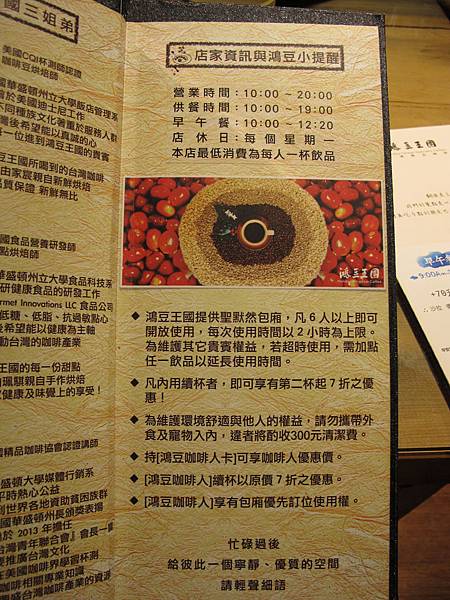 國三姐弟
美國CQI杯測師認證
咖啡豆烘焙師
國華盛頓州立大學飯店管理系
於美國迪士尼工作
不同種族文化著重於服務人群
灣後希望能以真誠的心
每一位進到鴻豆王國的貴賓
豆王國所喝到的台灣咖啡
由家宸親自新鮮烘焙
品質保證 新鮮無比
國食品營養研發師
點烘焙師
華盛頓州立大學食品科技系
研健康食品的研發工作
urmet Innovations LLC 食品公司
低糖、低脂、抗過敏點心
後希望能以健康為主軸
動台灣的咖啡產業
王國的每一份甜點
由珮騏親自手作烘焙
健康及味覺上的享受！
國精品咖啡協會認證講師
盛頓大學媒體行銷系
平時熱心公益
到世界各地資助貧困族群
國華盛頓州長頒獎表揚
於 2013 年擔任
台灣青年聯合會』會長一職
要推廣台灣文化
在美國咖啡界學習杯測
咖啡相關專業知識
灣咖啡成為台灣咖啡產業的資源
店家資訊與鴻豆小提醒
營業時間：10:00 ~ 20:00
供餐時間：10:00 ~ 19:00
早午餐：10:00 ~ 12:20
店休日：每個星期一
本店最低消費為每人一杯飲品
鴻豆王國
◆ 鴻豆王國提供聖默然包廂，凡 6 人以上即可
開放使用，每次使用時間以 2 小時為上限。
為維護其它貴賓權益，若超時使用，需加點
任一飲品以延長使用時間。
◆ 凡內用續杯者，即可享有第二杯起 7 折之優
惠！
◆ 為維護環境舒適與他人的權益，請勿攜帶外
食及寵物入內，違者將酌收300元清潔費。
◆ 持[鴻豆咖啡人卡]可享咖啡人優惠價。
◆ [鴻豆咖啡人]續杯以原價 7 折之優惠。
◆ [鴻豆咖啡人]享有包廂優先訂位使用權。
忙碌過後
給彼此一個寧靜、優質的空間
請輕聲細語
鴻豆王國
早午
9:00Am
+70